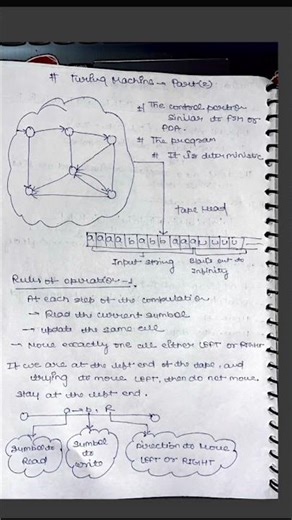 # Turing Machine → Part(2)
*) The control portion
similar to FSM or
PDA.
* The program
* It is deterministic
tape head
a a a a b a b b a a a ⊔ ⊔ ⊔ ⊔
Input string
Blanks out to
Infinity
Rules of operation →
At each step of the computation
→ Read the current symbol
→ update the same cell
→ Move exactly one cell either LEFT or RIGHT
If we are at the left end of the tape, and
trying to move LEFT, then do not move.
Stay at the left end.
a→b, R
Symbol to
Read
Symbol
to
write
Direction to Move
LEFT OR RIGHT